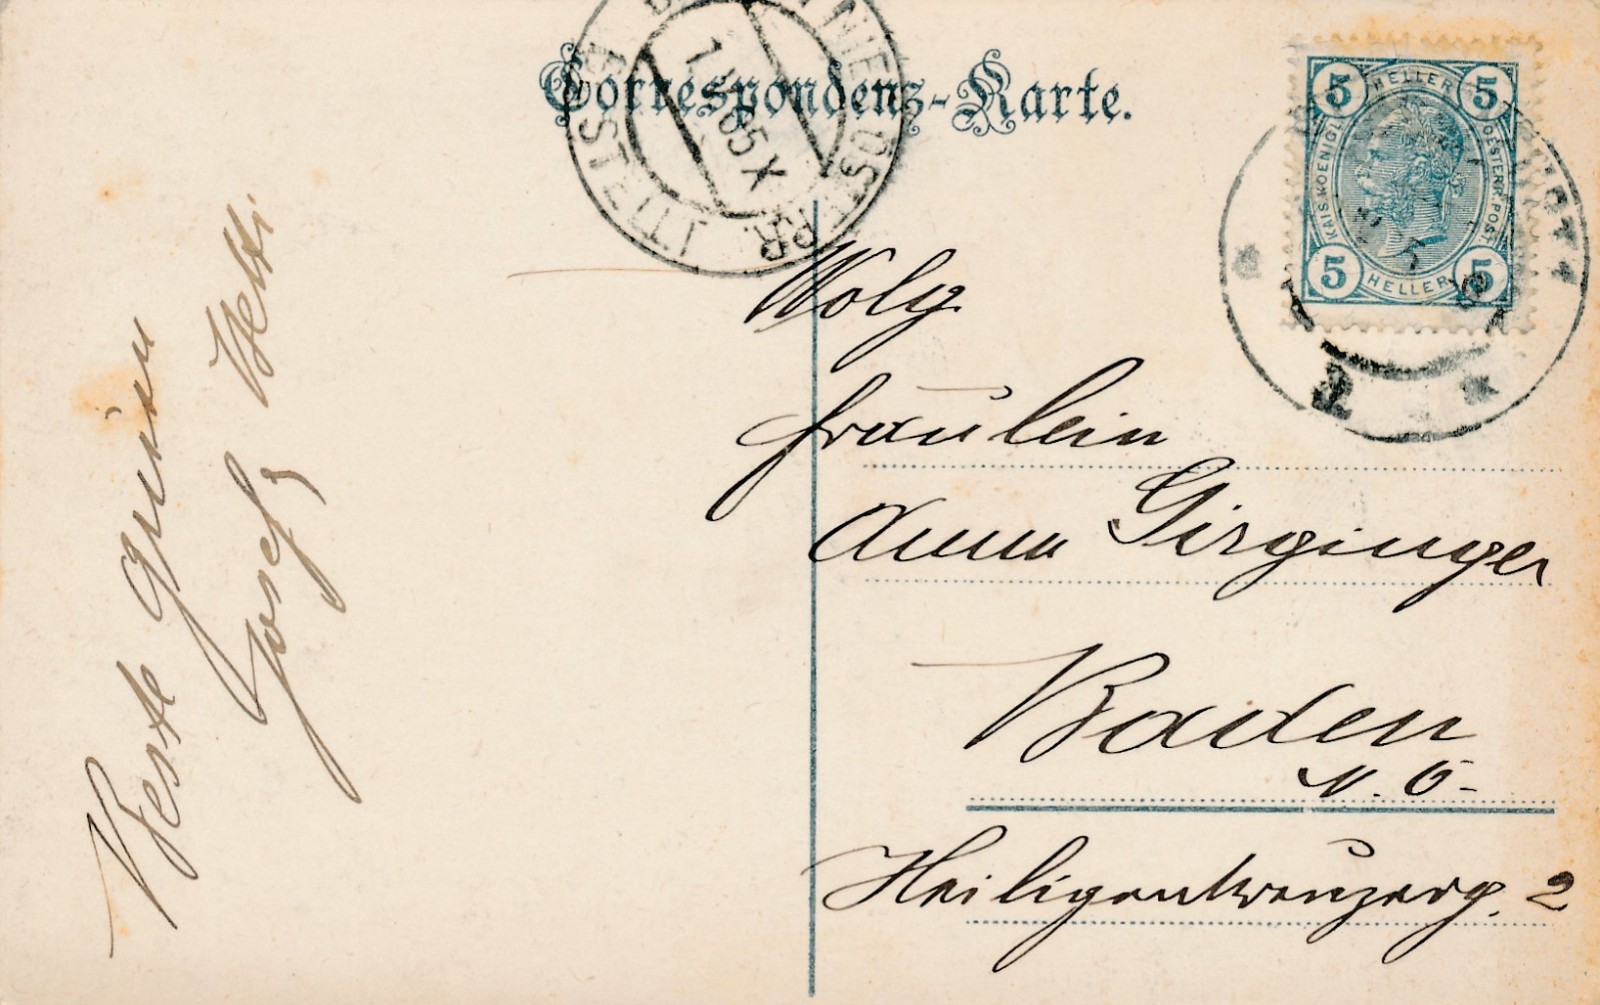 Correspondenz-Karte.
5 HELLER 5
KAIS. KOENIGL. OESTERR. POST
5 HELLER 5
BADEN NIEDERÖSTERR.
BESTELLT
Wolg.
Fräulein
Anna Girginger
Baden
N. Ö.
Heiligenkreuzerg. 2
Beste Grüsse
Josef, Betti